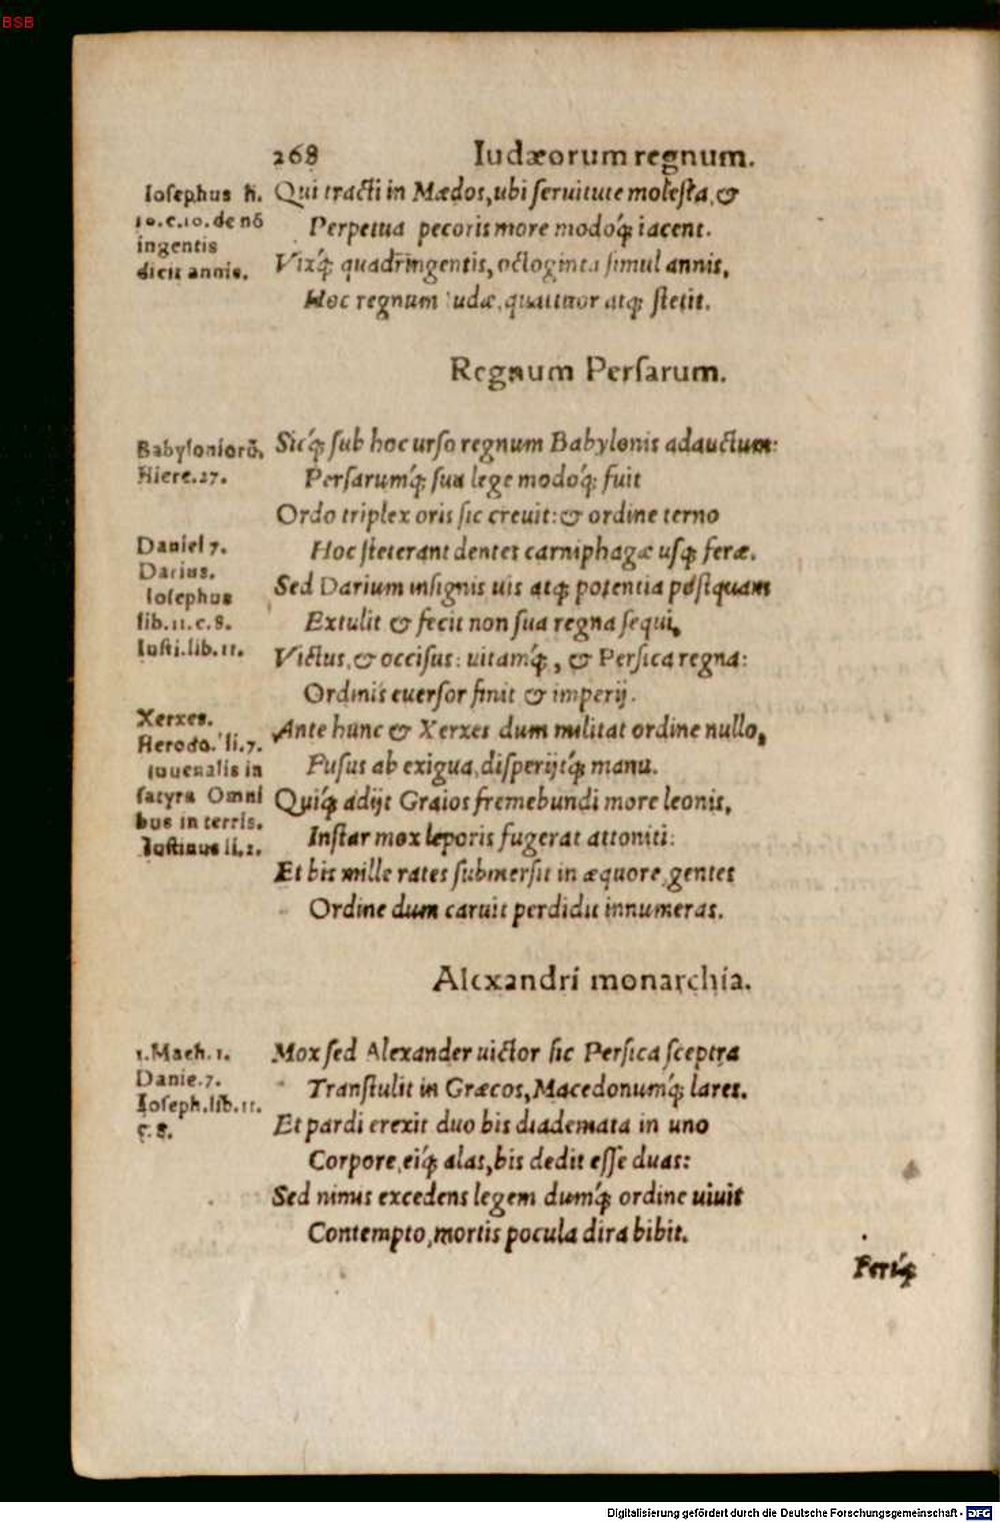 BSB
268 Iudæorum regnum.
Iosephus li.
10.c.10. de nõ
ingentis
dicit annis.
Qui tracti in Mædos, ubi ſeruitute moleſta, &
Perpetua pecoris more modoq́; iacent.
Vixq́; quadringentis, octoginta ſimul annis,
Hoc regnum Iudæ, quattuor atq; ſtetit.
Regnum Perſarum.
Babyloniorũ.
Hiere.27.
Sicq́; ſub hoc urſo regnum Babylonis adauctum:
Perſarumq́; ſua lege modoq́; fuit
Ordo triplex oris ſic creuit: & ordine terno
Hoc ſteterant dentes carniphagæ uſq; feræ.
Daniel 7.
Darius.
Ioſephus
lib.11.c.8.
Iuſti.lib.11.
Sed Darium inſignis uis atq; potentia poſtquam
Extulit & fecit non ſua regna ſequi,
Victus, & occiſus: uitamq́;, & Perſica regna:
Ordinis euerſor finit & imperij.
Xerxes.
Herodo. li.7.
Iuuenalis in
ſatyra Omni
bus in terris.
Iuſtinus li.2.
Ante hunc & Xerxes dum militat ordine nullo,
Fuſus ab exigua, diſperijtq́; manu.
Quiq́; adijt Graios fremebundi more leonis,
Inſtar mox leporis fugerat attoniti:
Et bis mille rates ſubmerſit in æquore, gentes
Ordine dum caruit perdidit innumeras.
Alexandri monarchia.
1.Mach.1.
Danie.7.
Ioſeph.lib.11.
c.8.
Mox ſed Alexander uictor ſic Perſica ſceptra
Tranſtulit in Græcos, Macedonumq́; lares.
Et pardi erexit duo bis diademata in uno
Corpore, eiq́; alas, bis dedit eſſe duas:
Sed nimis excedens legem dumq́; ordine uiuit
Contempto, mortis pocula dira bibit.
Fertq́;
Digitalisierung gefördert durch die Deutsche Forschungsgemeinschaft - DFG